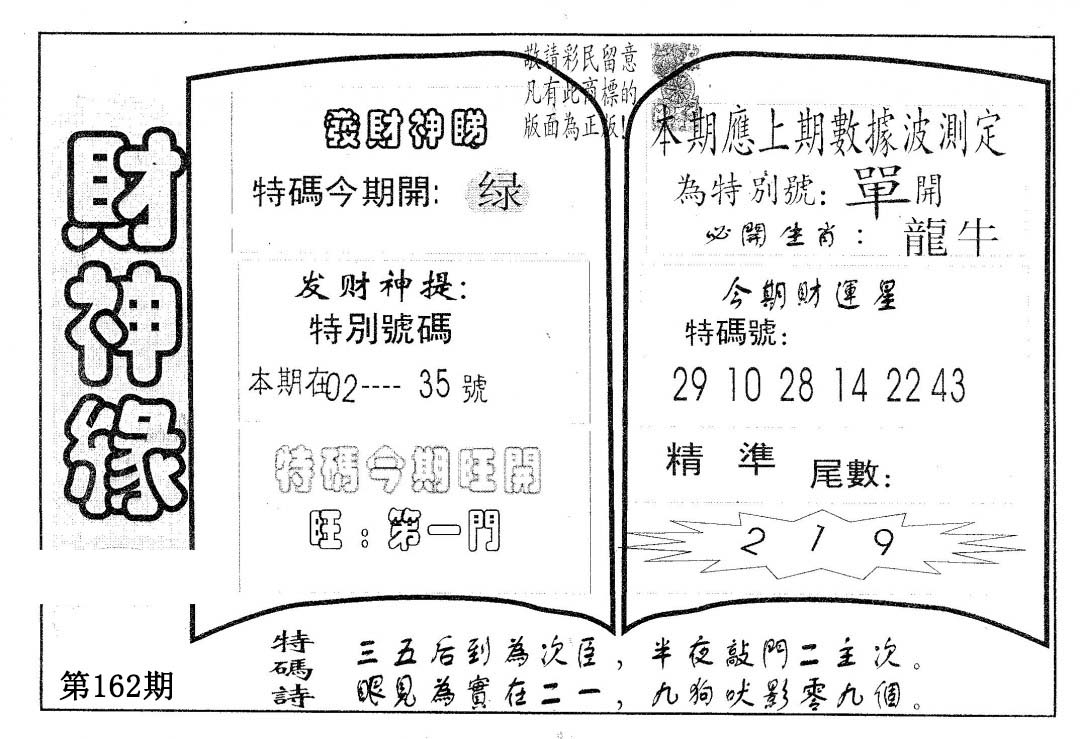 敬請彩民留意
凡有此商標的
版面為正版!
財神緣
發財神睇
特碼今期開: 绿
发财神提:
特別號碼
本期在02---- 35號
特碼今期旺開
旺:第一門
本期應上期數據波測定
為特別號: 單開
必開生肖: 龍牛
今期財運星
特碼號:
29 10 28 14 22 43
精 準 尾數:
2 1 9
特碼詩
三五后到為次臣,半夜敲門二主次。
眼見為實在二一,九狗吠影零九個。
第162期